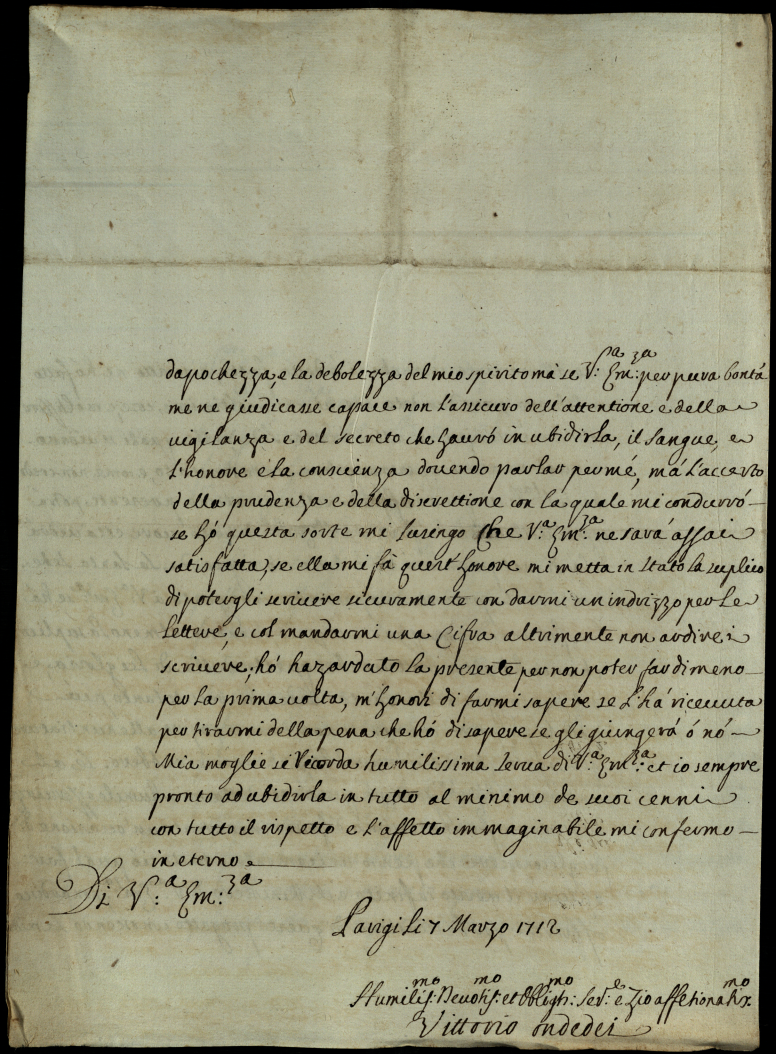 dapochezza, e la debolezza del mio spirito mà se V:ᵃ Em:ᶻᵃ per pura bontà
me ne giudicasse capace non l'assicuro dell'attentione e della
vigilanza e del secreto che haurò in ubidirla, il sangue, e
l'honore e la conscienza dovendo parlar per mé, má l'accerto
della prudenza e della discrettione con la quale mi condurrò
se hó questa sorte mi lusingo che V:ᵃ Em:ᶻᵃ ne sará assai
satisfatta, se ella mi fà quest'honore mi metta in stato la suplico
di potergli scrivere sicuramente con darmi un indrizzo per le
lettere, e col mandarmi una Cifra altrimente non ardirei
scrivere, hó hazardato la presente per non poter far di meno
per la prima volta, m'honori di farmi sapere se l'há ricevuta
per tirarmi della pena che hó di sapere se gli giungerá ó nó
Mia moglie si ricorda humilissima serva di V:ᵃ Em:ᶻᵃ et io sempre
pronto ad ubidirla in tutto al minimo de suoi cenni
con tutto il rispetto e l'affetto immaginabile mi confermo
in eterno
Di V:ᵃ Em:ᶻᵃ
Parigi li 7 Marzo 1712
Humilis:ᵐᵒ Devotis:ᵐᵒ et Obligtis:ᵐᵒ Ser:ᵉ e Zio affetionatis:ᵐᵒ
Vittorio ondedei